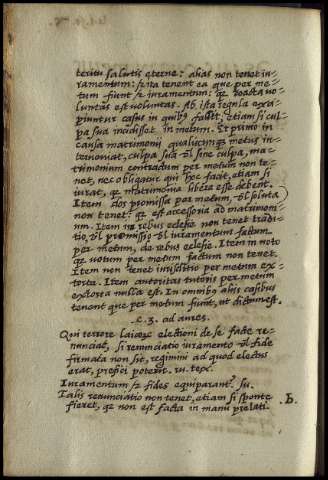 teritu salutis eterne: alias non tenet iu-
ramentum: sz ita tenent ea que per me-
tum fiunt sz iuramentum: qz coacta vo-
luntas est voluntas. Ab ista regula exci-
piuntur casus in quibus fallit, etiam si cul-
pa sua incidisset in metum. Et primo in
causa matrimonii qualiscunque metus in-
terveniat, culpa sua vel sine culpa, ma-
trimonium contractum per metum non te-
net, nec obligatur qui hec facit, etiam si
iurat, qz matrimonia libera esse debent.
Item dos promissa per metum, vel soluta
non tenet: qz est accessoria ad matrimoni-
um. Item in rebus ecclesie non tenet tradi-
tio, vel promissio vel iuramentum factum
per metum, de rebus ecclesie. Item in voto
qz votum per metum factum non tenet.
Item non tenet iurisditio per metum ex-
torta. Item autoritas tutoris per metum
extorta nulla est. In omnibus aliis casibus
tenent que per metum fiunt, ut dictum est.
.c. 3. ad aures.
Qui terrore laicorum electioni de se facte re-
nunciat, si renunciatio iuramento vel fide
firmata non sit, regimini ad quod electus
erat, prefici poterit.
Iuramentum sz fides equiparantur. su.
Talis renunciatio non tenet, etiam si sponte
fieret, qz non est facta in manu prelati.
b.